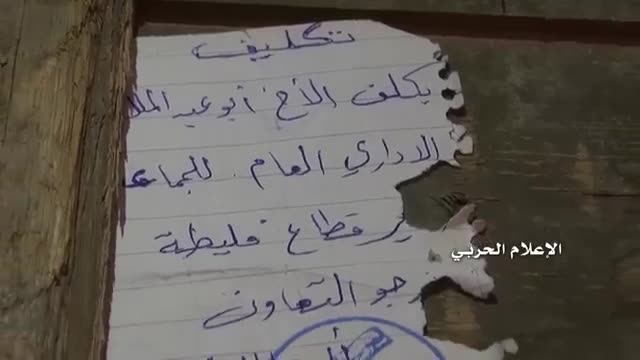 تكليف
يكلف الأخ أبو عبد الملا
الاداري العام للجماعـ
ير قطاع قليطة
رجو التعاون
الإعلام الحربي